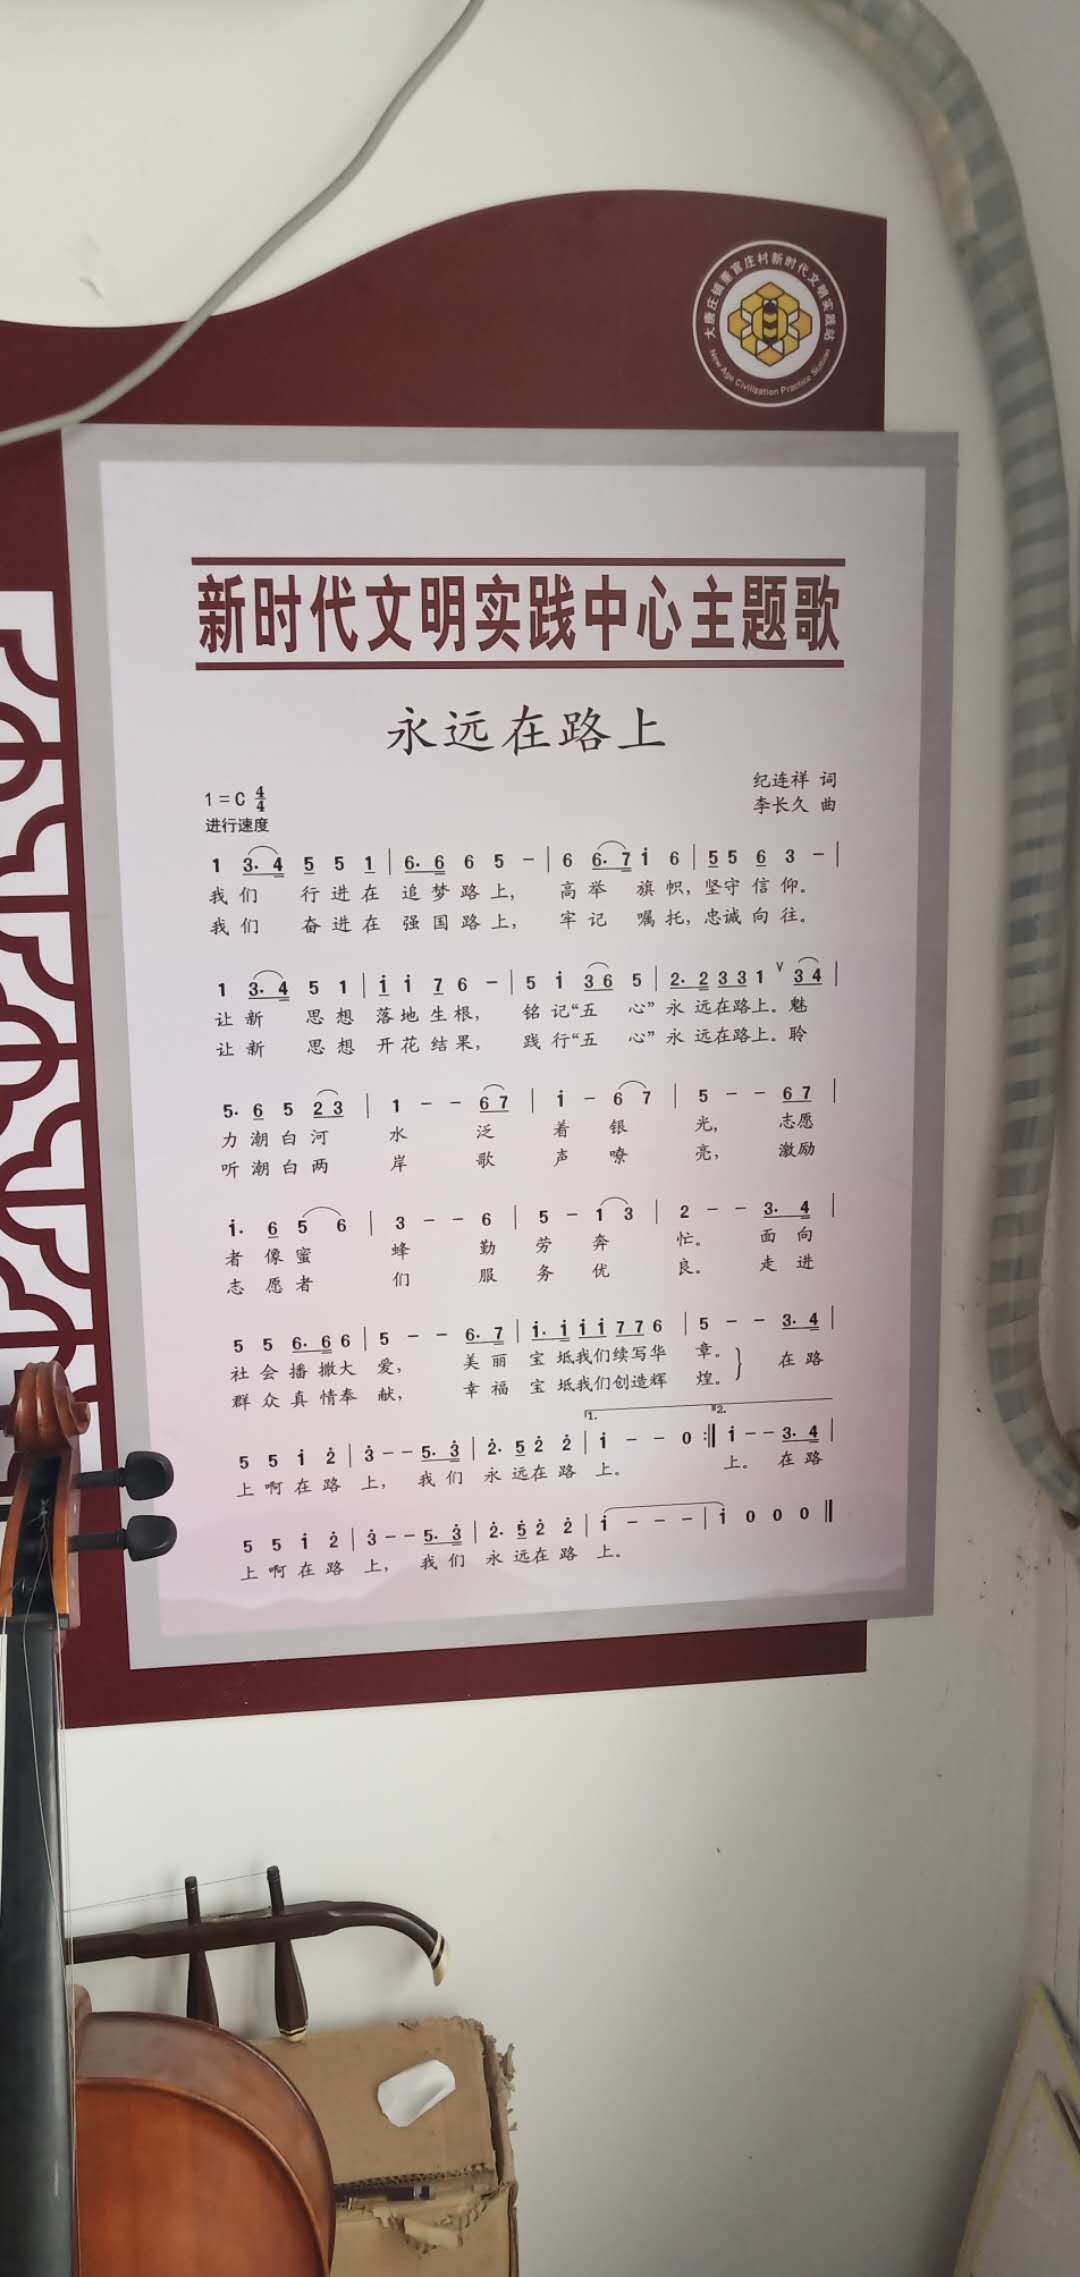 大唐庄镇董官庄村新时代文明实践站
New Age Civilization Practice Station
新时代文明实践中心主题歌
永远在路上
1=C 4/4
纪连祥 词
进行速度
李长久 曲
1 3· 4 5 5 1 | 6· 6 6 5 – | 6 6· 7 i 6 | 5 5 6 3 – |
我们 行进在 追梦路上， 高举 旗帜，坚守信仰。
我们 奋进在 强国路上， 牢记 嘱托，忠诚向往。
1 3· 4 5 1 | i i 7 6 – | 5 i 3 6 5 | 2· 2 3 3 1 ∨ 3 4 |
让新 思想 落地生根， 铭记“五 心”永远在路上。魅
让新 思想 开花结果， 践行“五 心”永远在路上。聆
5· 6 5 2 3 | 1 – – 6 7 | i – 6 7 | 5 – – 6 7 |
力潮白河 水 泛 着 银 光， 志愿
听潮白两 岸 歌 声 嘹 亮， 激励
i· 6 5 6 | 3 – – 6 | 5 – 1 3 | 2 – – 3· 4 |
者像蜜 蜂 勤 劳 奔 忙。 面向
志愿者 们 服 务 优 良。 走进
5 5 6· 6 6 | 5 – – 6· 7 | i· i i i 7 7 6 | 5 – – 3· 4 |
社会播撒大 爱， 美丽 宝坻我们续写华 章。 在路
群众真情奉 献， 幸福 宝坻我们创造辉 煌。
1. 2.
5 5 i 2̇ | 3̇ – – 5· 3̇ | 2̇· 5 2̇ 2̇ | i – – 0 :‖ i – – 3· 4 |
上啊在路 上， 我们 永远在路 上。 上。 在路
5 5 i 2̇ | 3̇ – – 5· 3̇ | 2̇· 5 2̇ 2̇ | i – – – | i 0 0 0 ‖
上啊在路 上， 我们 永远在路 上。